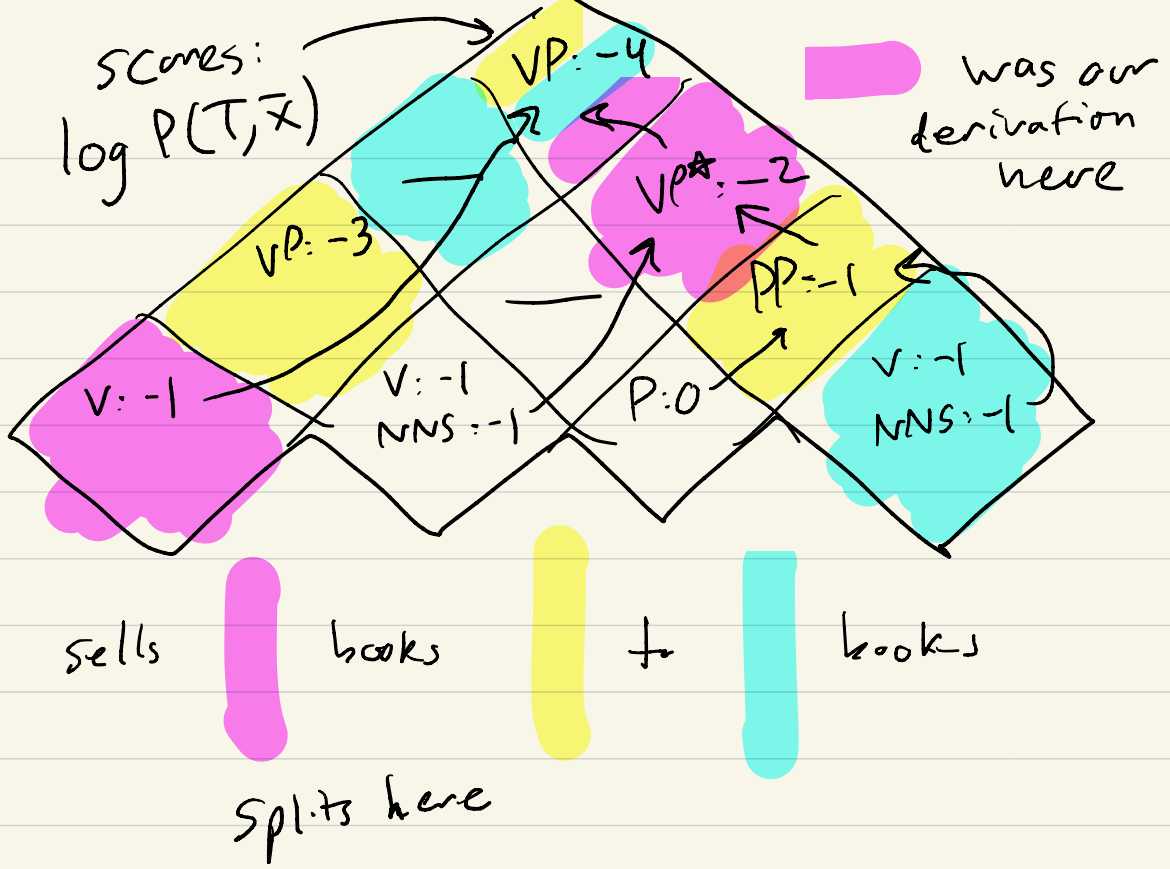 scores:
log P(T, x̄)
VP: -4
was our
derivation
here
—
VP*: -2
VP: -3
—
PP: -1
V: -1
V: -1
NNS: -1
P: 0
V: -1
NNS: -1
sells books to books
splits here